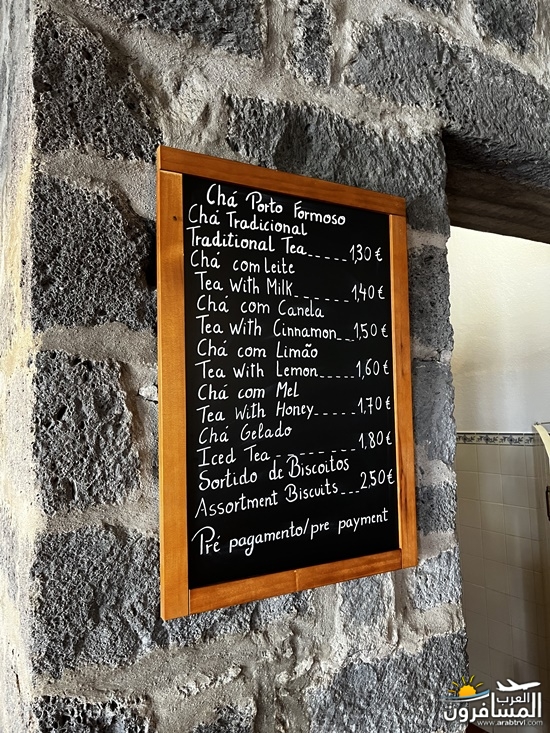 Chá Porto Formoso
Chá Tradicional
Traditional Tea_____1,30 €
Chá com Leite
Tea With Milk_______1,40 €
Chá com Canela
Tea With Cinnamon__1,50 €
Chá com Limão
Tea With Lemon____1,60 €
Chá com Mel
Tea With Honey_____1.70 €
Chá Gelado
Iced Tea_________1,80 €
Sortido de Biscoitos
Assortment Biscuits___2,50 €
Pré pagamento/pre payment
العرب
المسافرون
www.arabtrvl.com